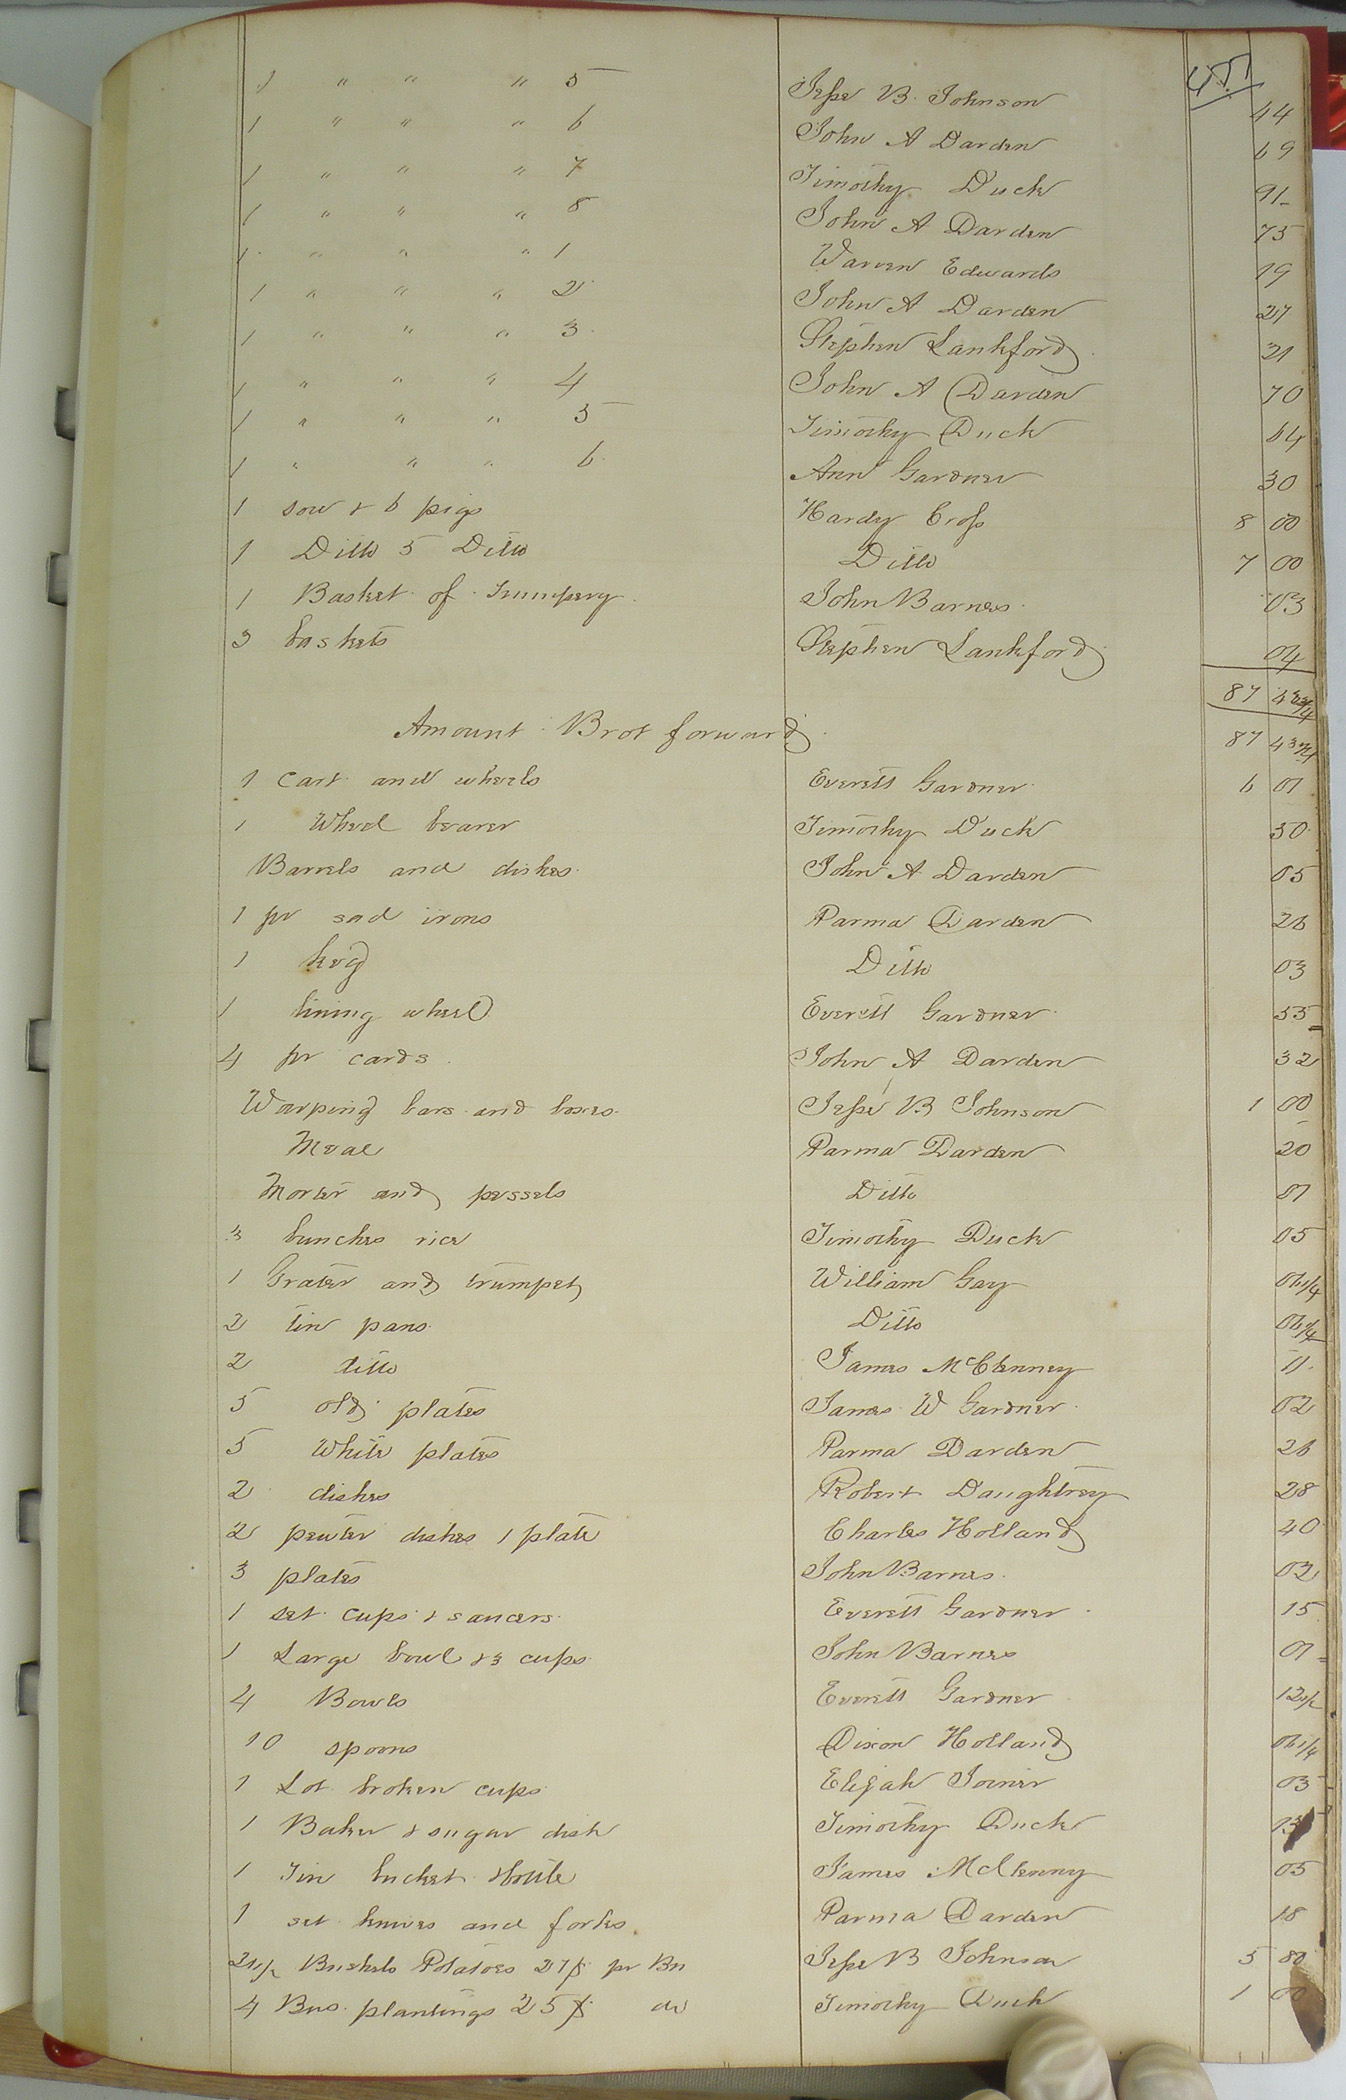 1 " " " 5 Jesse B. Johnson 44
1 " " " 6 John A Darden 69
1 " " " 7 Timothy Duck 91
1 " " " 8 John A Darden 75
1 " " " 1 Warren Edwards 19
1 " " " 2 John A Darden 27
1 " " " 3 Stephen Lankford 21
1 " " " 4 John A Darden 70
1 " " " 5 Timothy Duck 64
1 " " " 6 Ann Gardner 30
1 sow & 6 pigs Hardy Cross 8 00
1 Ditto 5 Ditto Ditto 7 00
1 Basket of Trumpery John Barnes 03
3 baskets Stephen Lankford 04
87 43 3/4
Amount Brot forward 87 43 3/4
1 Cart and wheels Everett Gardner 6 01
1 Wheel bearer Timothy Duck 50
Barrels and dishes John A Darden 05
1 pr sad irons Parma Darden 26
1 keg Ditto 03
1 lining wheel Everett Gardner 55
4 pr cards John A Darden 32
Warping bars and boxes Jesse B Johnson 1 00
Meal Parma Darden 20
Morter and pessels Ditto 01
3 bunches rice Timothy Duck 05
1 Grater and trumpet William Gay 06 1/4
2 tin pans Ditto 06 1/4
2 ditto James McClenney 11
5 old plates James W Gardner 02
5 White plates Parma Darden 26
2 dishes Robert Daughtrey 28
2 pewter dishes 1 plate Charles Holland 40
3 plates John Barnes 02
1 set cups & saucers Everett Gardner 15
1 Large bowl & 3 cups John Barnes 01
4 Bowls Everett Gardner 12 1/2
10 spoons Dixon Holland 06 1/4
1 Lot broken cups Elijah Joiner 03
1 Baker & sugar dish Timothy Duck
1 Tin bucket & bottle James McClenny 05
1 set knives and forks Parma Darden 18
21 1/2 Bushels Potatoes 27¢ pr Bu Jesse B Johnson 5 80
4 Bus. plantings 25¢ do Timothy Duck 1 00